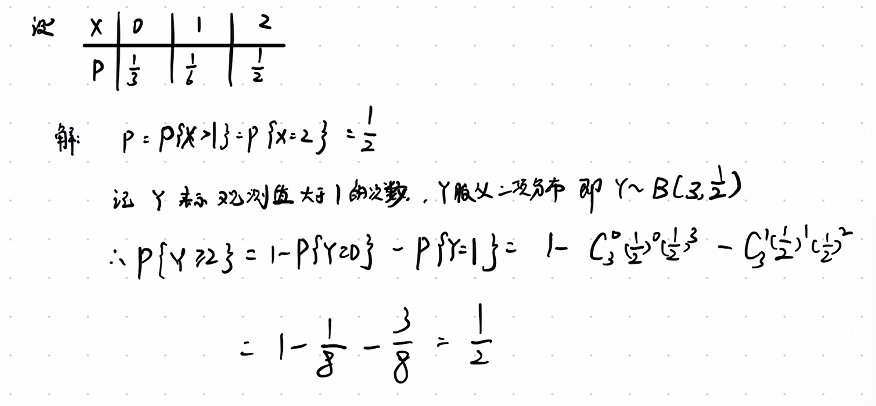 设 X 0 1 2
P 1/3 1/6 1/2
解: P = P{X>1} = P{X=2} = 1/2
记 Y 表示 观测值 大于 1 的次数. , Y服从二项分布 即 Y~B(3,1/2)
∴ P{Y≥2} = 1-P{Y=0} - P{Y=1} = 1 - C₃⁰(1/2)⁰(1/2)³ - C₃¹(1/2)¹(1/2)²
= 1 - 1/8 - 3/8 = 1/2